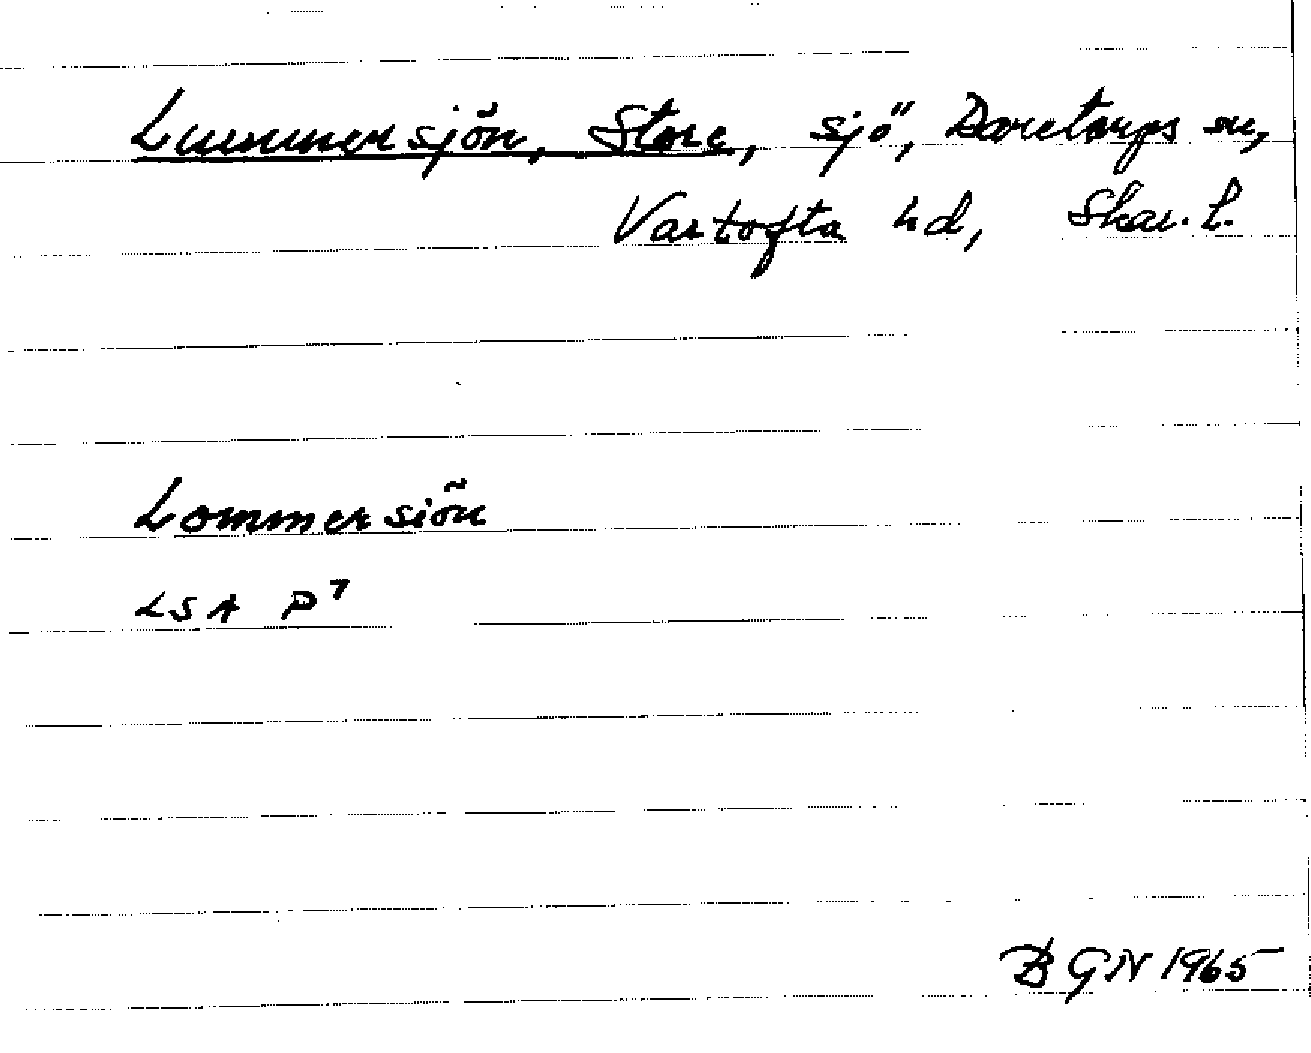 Lummersjön, Store, sjö, Daretorps sn,
Vartofta hd, Skar. l.
Lommersiön
LSA P7
BGN 1965